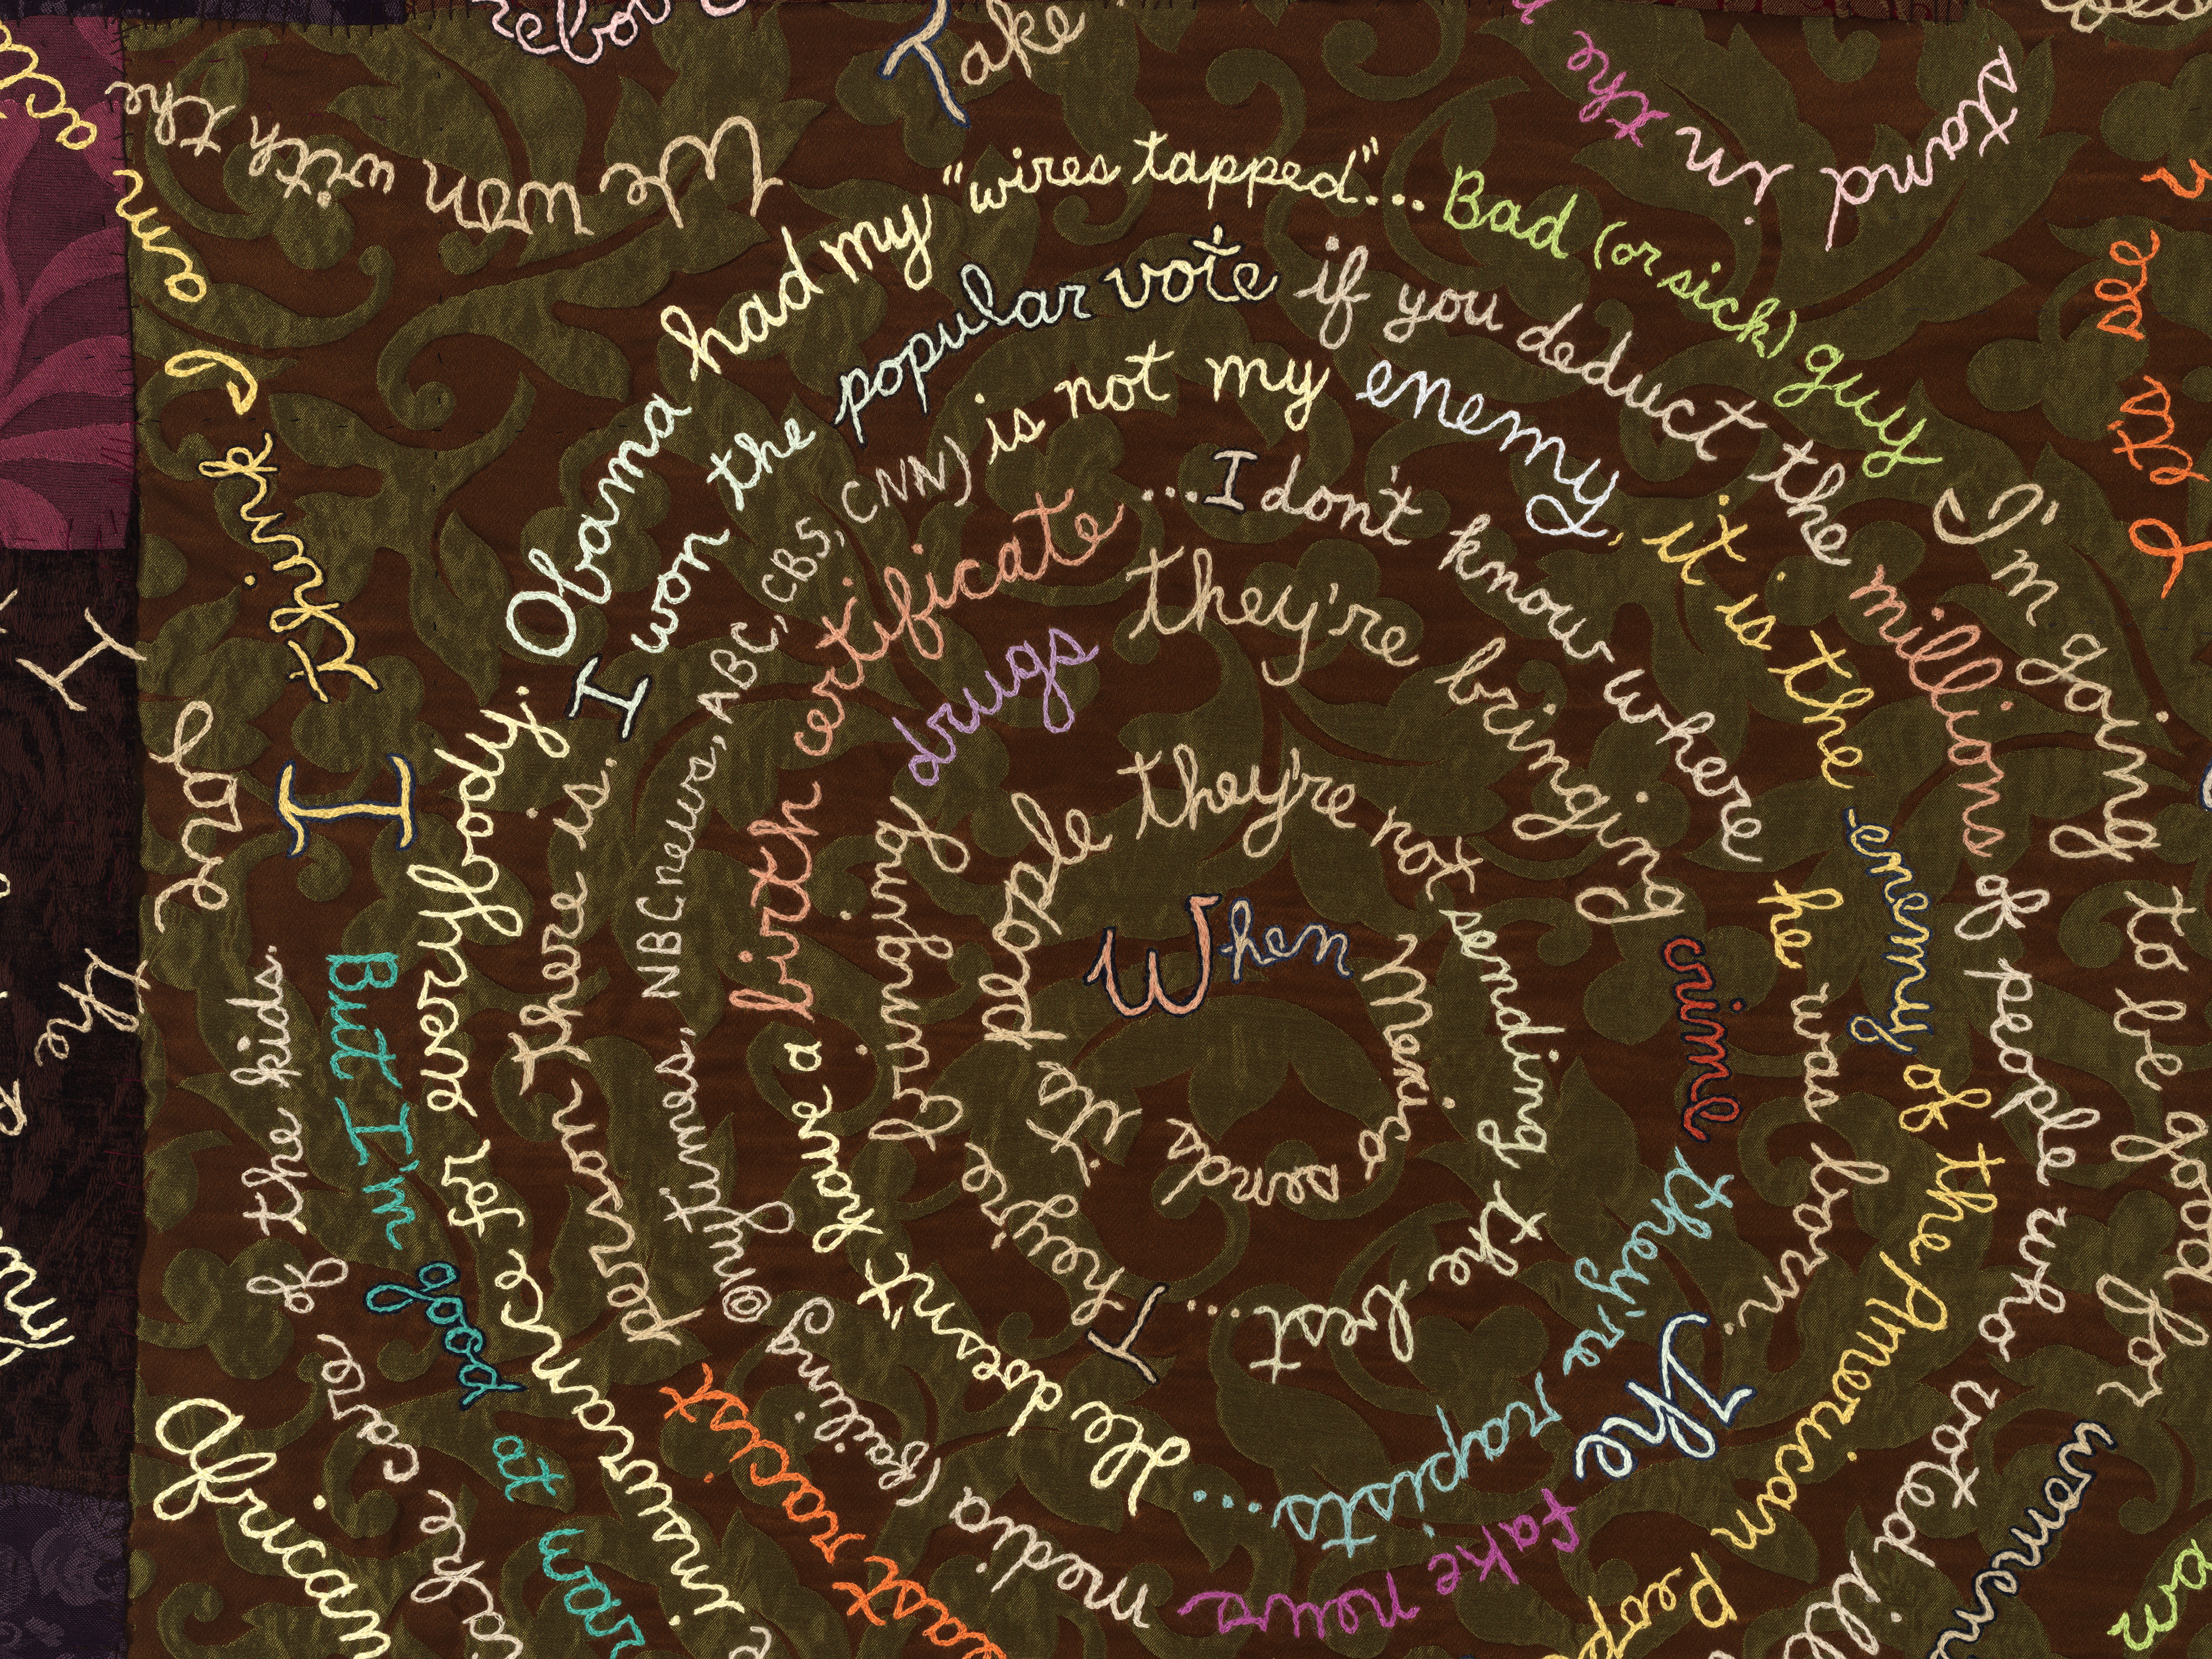 When Mexico sends its people they're not sending the best.... They're bringing drugs they're bringing crime they're rapists...
He doesn't have a birth certificate ...I don't know where he was born.
The fake news media (failing @nytimes, NBCnews, ABC, CBS, CNN) is not my enemy, it is the enemy of the American Peop
east racist person there is.
I won the popular vote if you deduct the millions of people who voted ill
insurance for everybody.
Obama had my "wires tapped"... Bad (or sick) guy
I'm going to be good for women
But I'm good at war
take care of the kids.
African
I think I am
act
love
We won with the
Take
stand in the
I
the
my